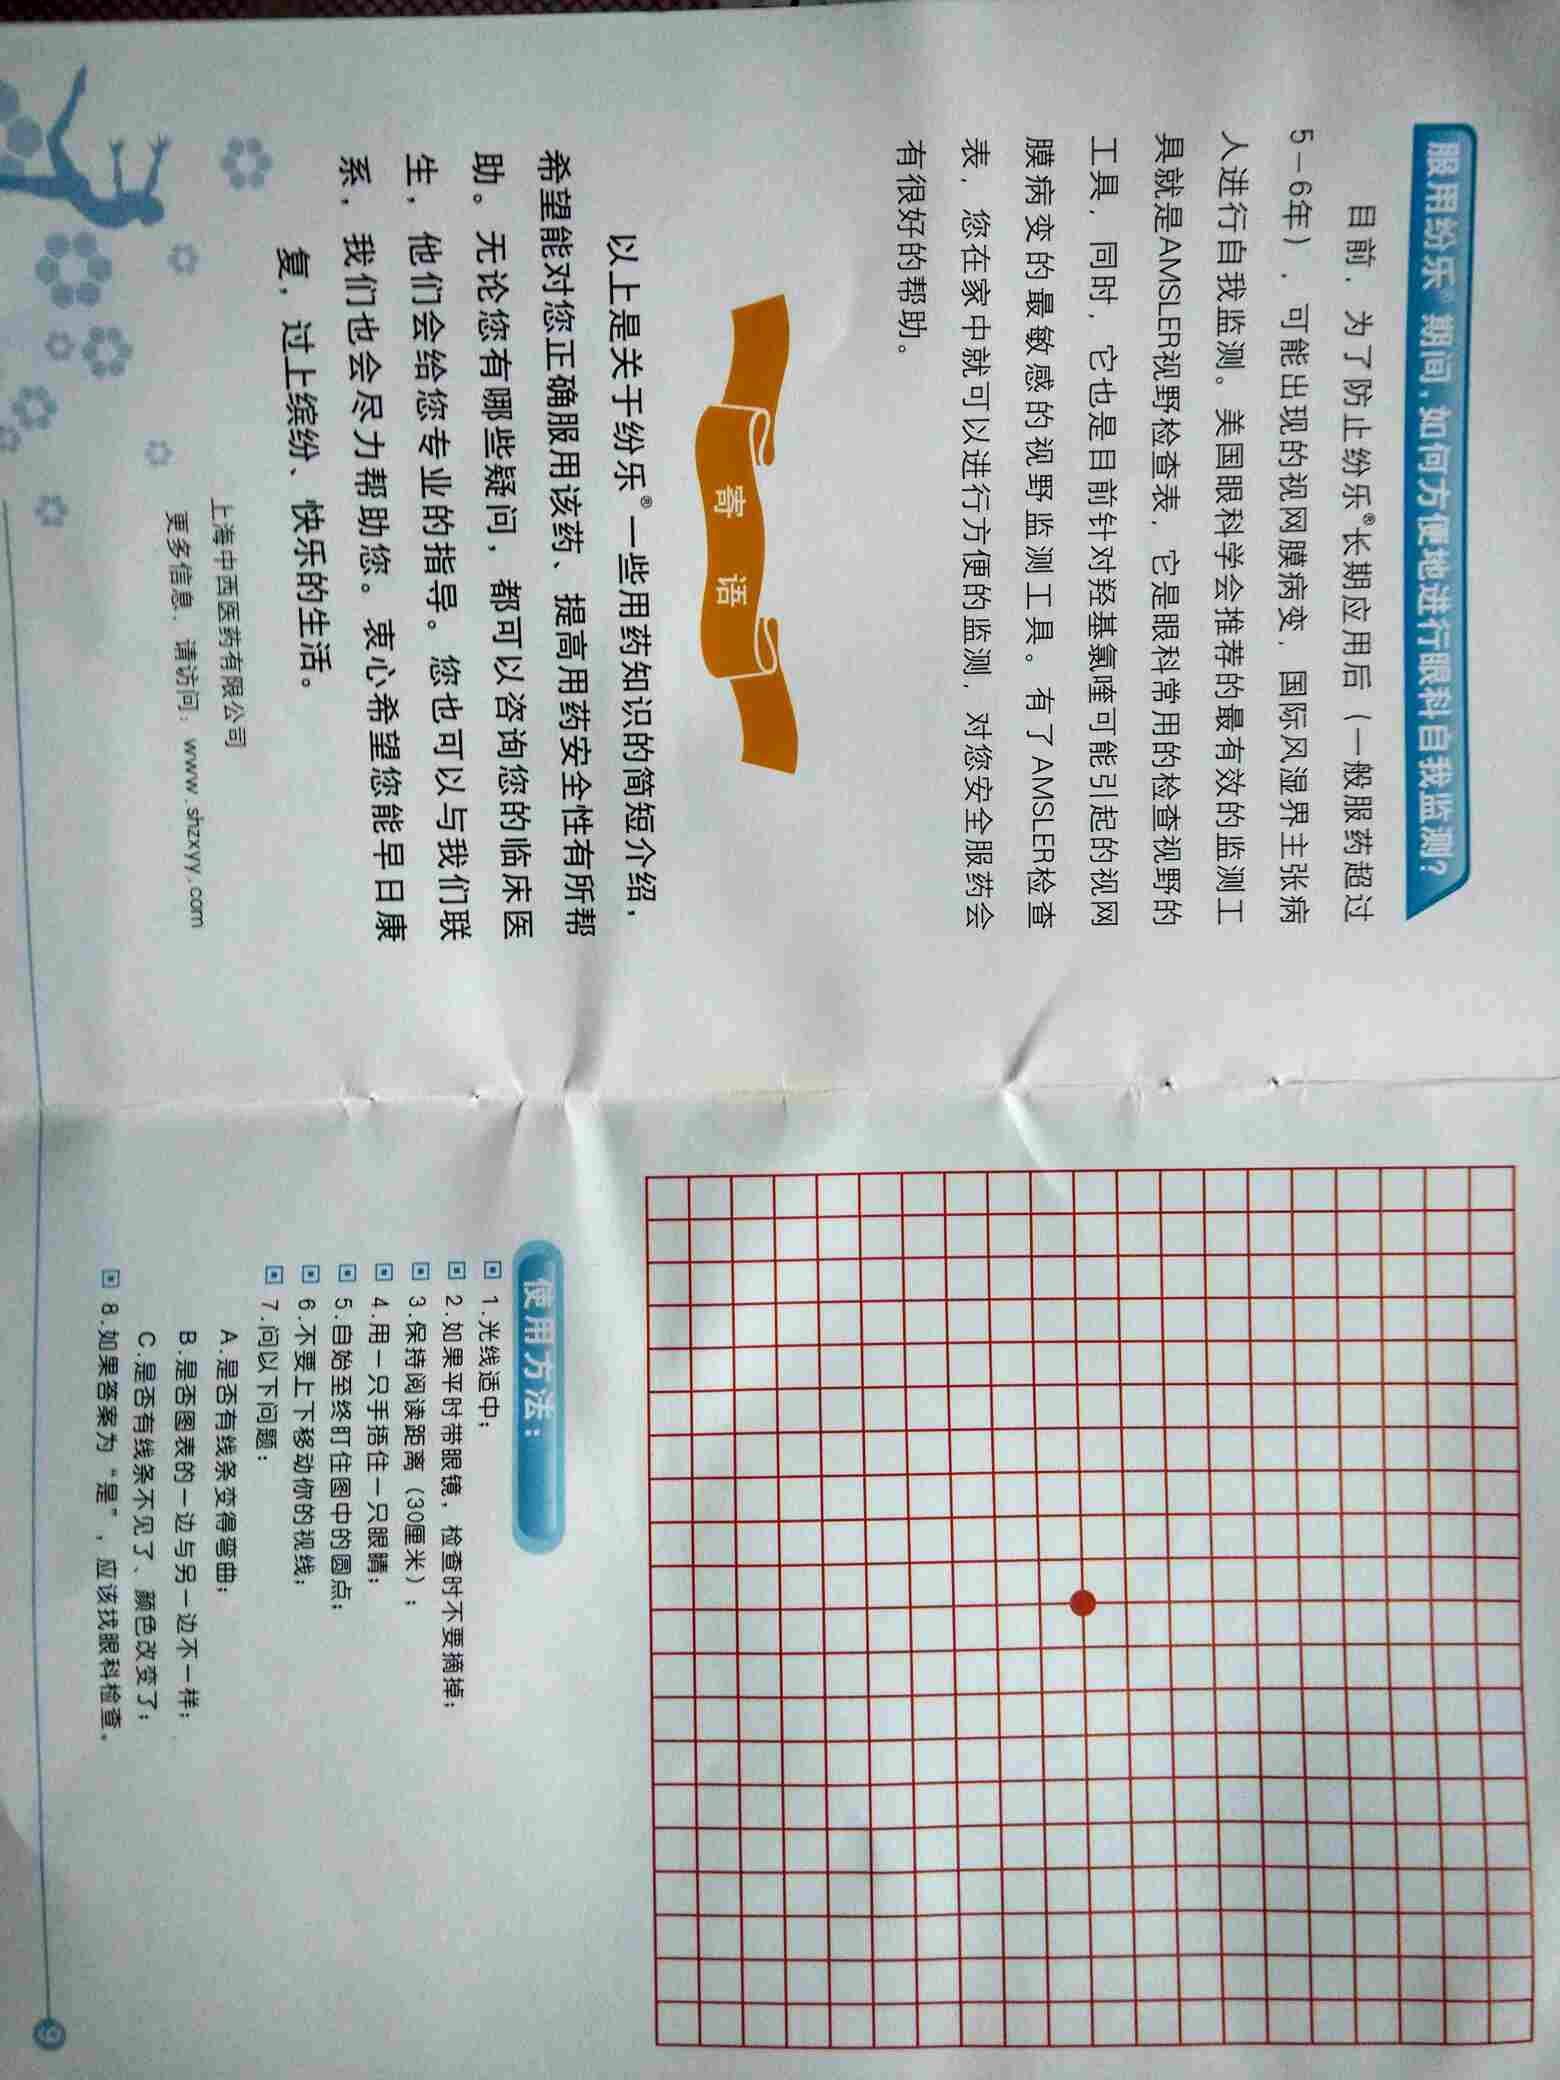 服用纷乐®期间，如何方便地进行眼科自我监测？
目前，为了防止纷乐®长期应用后（一般服药超过
5－6年），可能出现的视网膜病变，国际风湿界主张病
人进行自我监测。美国眼科学会推荐的最有效的监测工
具就是AMSLER视野检查表，它是眼科常用的检查视野的
工具，同时，它也是目前针对羟基氯喹可能引起的视网
膜病变的最敏感的视野监测工具。有了AMSLER检查
表，您在家中就可以进行方便的监测，对您安全服药会
有很好的帮助。
寄 语
以上是关于纷乐®一些用药知识的简短介绍，
希望能对您正确服用该药、提高用药安全性有所帮
助。无论您有哪些疑问，都可以咨询您的临床医
生，他们会给您专业的指导。您也可以与我们联
系，我们也会尽力帮助您。衷心希望您能早日康
复，过上缤纷、快乐的生活。
上海中西医药有限公司
更多信息，请访问：www.shzxyy.com
使用方法：
1.光线适中；
2.如果平时带眼镜，检查时不要摘掉；
3.保持阅读距离（30厘米）；
4.用一只手捂住一只眼睛；
5.自始至终盯住图中的圆点；
6.不要上下移动你的视线；
7.问以下问题：
A.是否有线条变得弯曲；
B.是否图表的一边与另一边不一样；
C.是否有线条不见了、颜色改变了；
8.如果答案为“是”，应该找眼科检查。
9